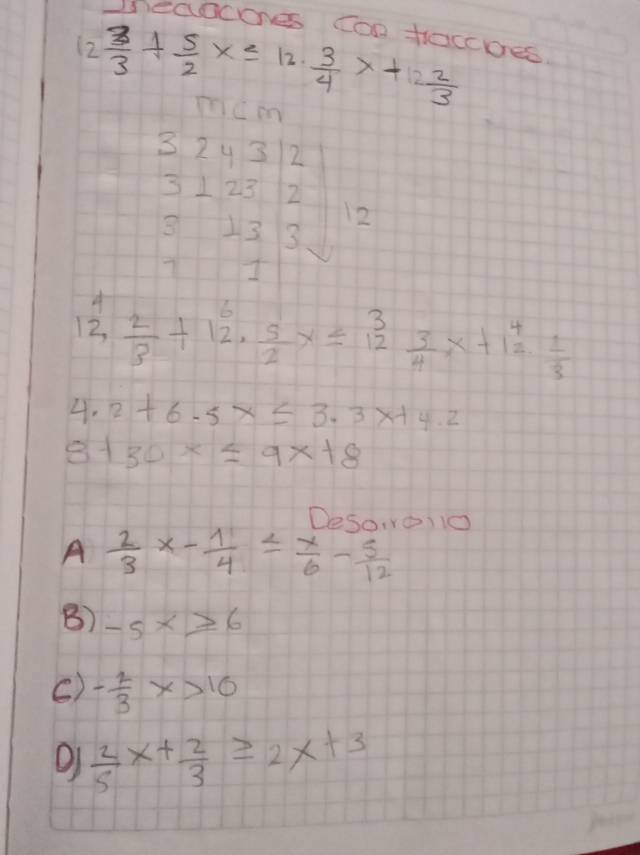 Inecuaciones con fracciones.
12 3/3 + 5/2 x ≤ 12. 3/4 x + 12 2/3
mcm
3 2 4 3 | 2
3 1 2 3 | 2
3 1 3 | 3 12
1 1
4 6 3 4
12. 2/3 + 12. 5/2 x ≤ 12 3/4 x + 12. 2/3
4.2 + 6.5x ≤ 3.3x + 4.2
8 + 30x ≤ 9x + 8
Desarrollo
A 2/3 x - 1/4 ≤ x/6 - 5/12
B) -5x ≥ 6
C) - 2/3 x > 10
D) 2/5 x + 2/3 ≥ 2x + 3